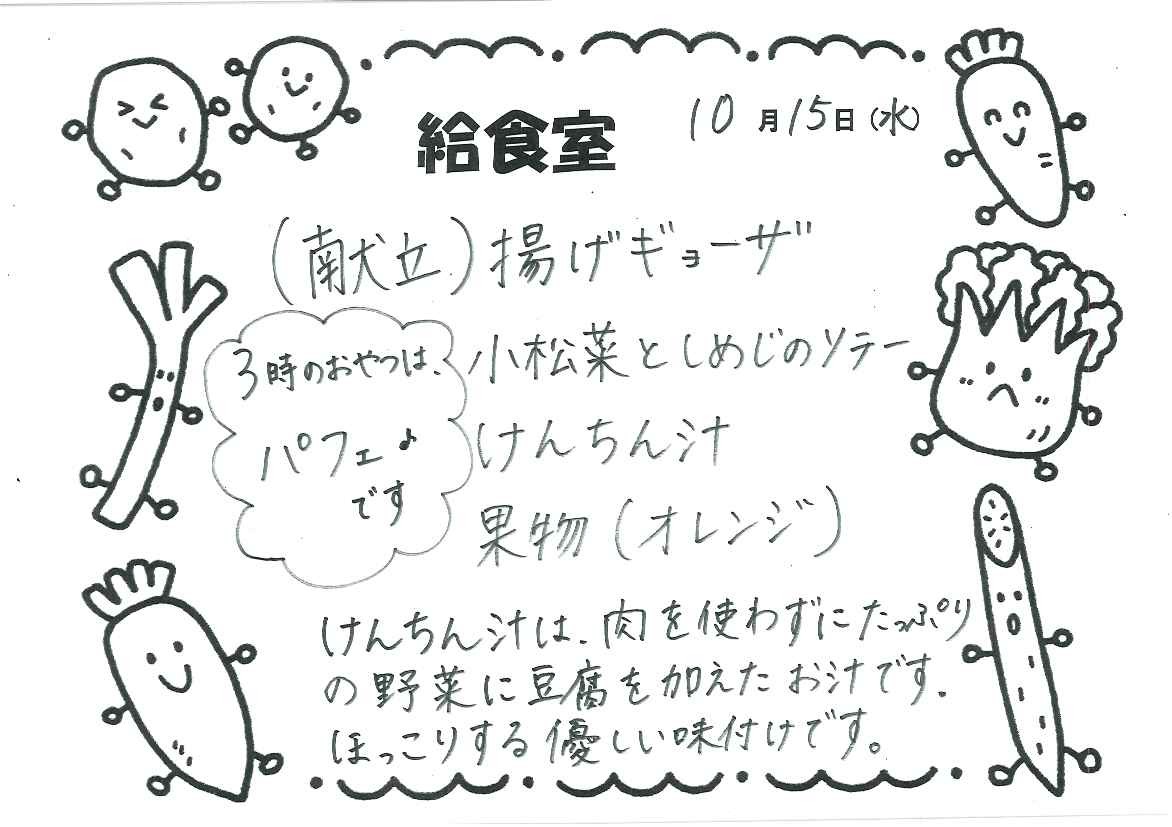 給食室
10月15日(水)
(献立)揚げギョーザ
小松菜としめじのソテー
けんちん汁
果物(オレンジ)
3時のおやつは、
パフェ♪
です
けんちん汁は、肉を使わずにたっぷり
の野菜に豆腐を加えたお汁です.
ほっこりする優しい味付けです。